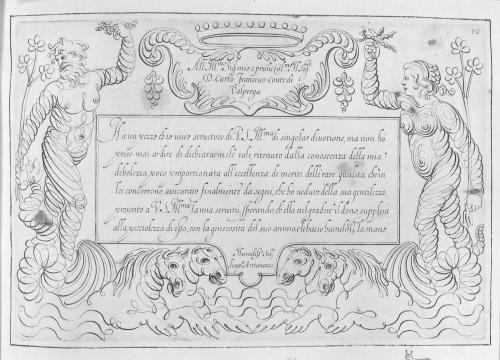 10
All' Ill.mo Sig. mio e pron. col.mo Il Sig.
D. Carlo Francesco Conte di
Valperga
Ha un pezzo ch'io vivo servitore di V.S. Ill.ma di singolar divotione, ma non ho
preso mai ardire di dichiararmile tale, ritenuto dalla conoscenza della mia
debolezza poco proportionata all'eccellenza di meriti delle rare qualità, che in
lei concorrono, assicurato finalmente da segni, che ho veduto della sua gentilezza,
presento a V.S. Ill.ma la mia servitù sperando ch'ella nel gradire il dono supplirà
alla picciolezza di esso, con la generosità del suo animo, e le bacio humilm.te la mano
Humiliss. Ser.
Antonozzi